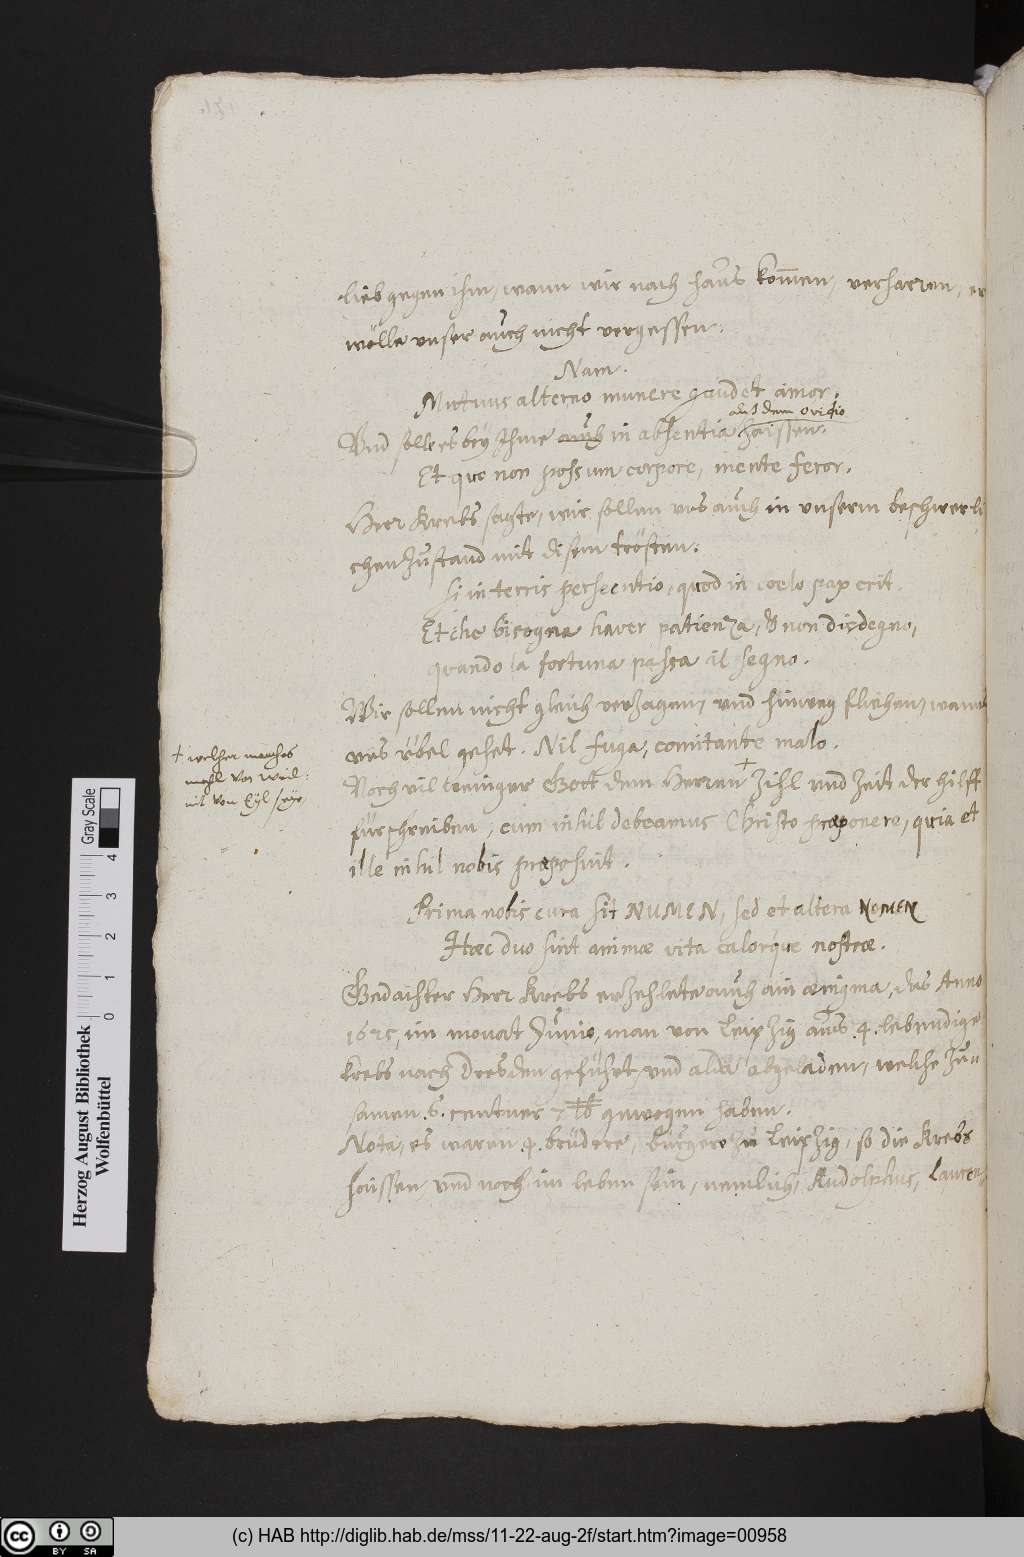 lieb gegen ihm, wann wir nach haus kom̅en, verharren, er
wölle vnser auch nicht vergessen.
Nam.
Mutuus alterno munere gaudet amor.
auß dem Ovidio
Vnd soll es bey Ihme auch in absentia haissen.
Et quo non possum corpore, mente feror.
Herr Krebs sagte, wir sollen vns auch in vnserm beschwerli
chen Zustand mit disem trösten.
si in terris persecutio, quod in coelo pax erit.
Et che bisogna haver patienza, & non disdegno,
quando la fortuna passa il segno.
Wir sollen nicht gleich verzagen, vnd hinweg fliehen, wann
vns übel gehet. Nil fuga, comitante malo.
Noch vil weniger Gott dem Herren + Zihl vnd Zeit der hilff
fürschreiben, cum nihil debeamus Christo præponere, quia et
ille nihil nobis præposuit.
+ welcher manches
mahl von Weil:
nit von Eyl seye
Prima nobis cura sit NUMEN, sed et altera NOMEN
Hæc duo sint animæ vita calorque nostræ.
Gedachter Herr Krebs erzehlete auch ain ænigma, das Anno
1625, im monat Junio, man von Leipzig aus .4. lebendige
krebs nach Dresden geführt, vnd alda abgeladen, welche Zu-
samen .6. centner 7 lb gewogen haben.
Nota, es waren .4. brüdere, burgere zu Leipzig, so die Krebs
haissen, vnd noch im leben sein, nemlich, Rudolphus, Lauren
Herzog August Bibliothek
Wolfenbüttel
Gray Scale
0 1 2 3 4
cc BY SA
(c) HAB http://diglib.hab.de/mss/11-22-aug-2f/start.htm?image=00958